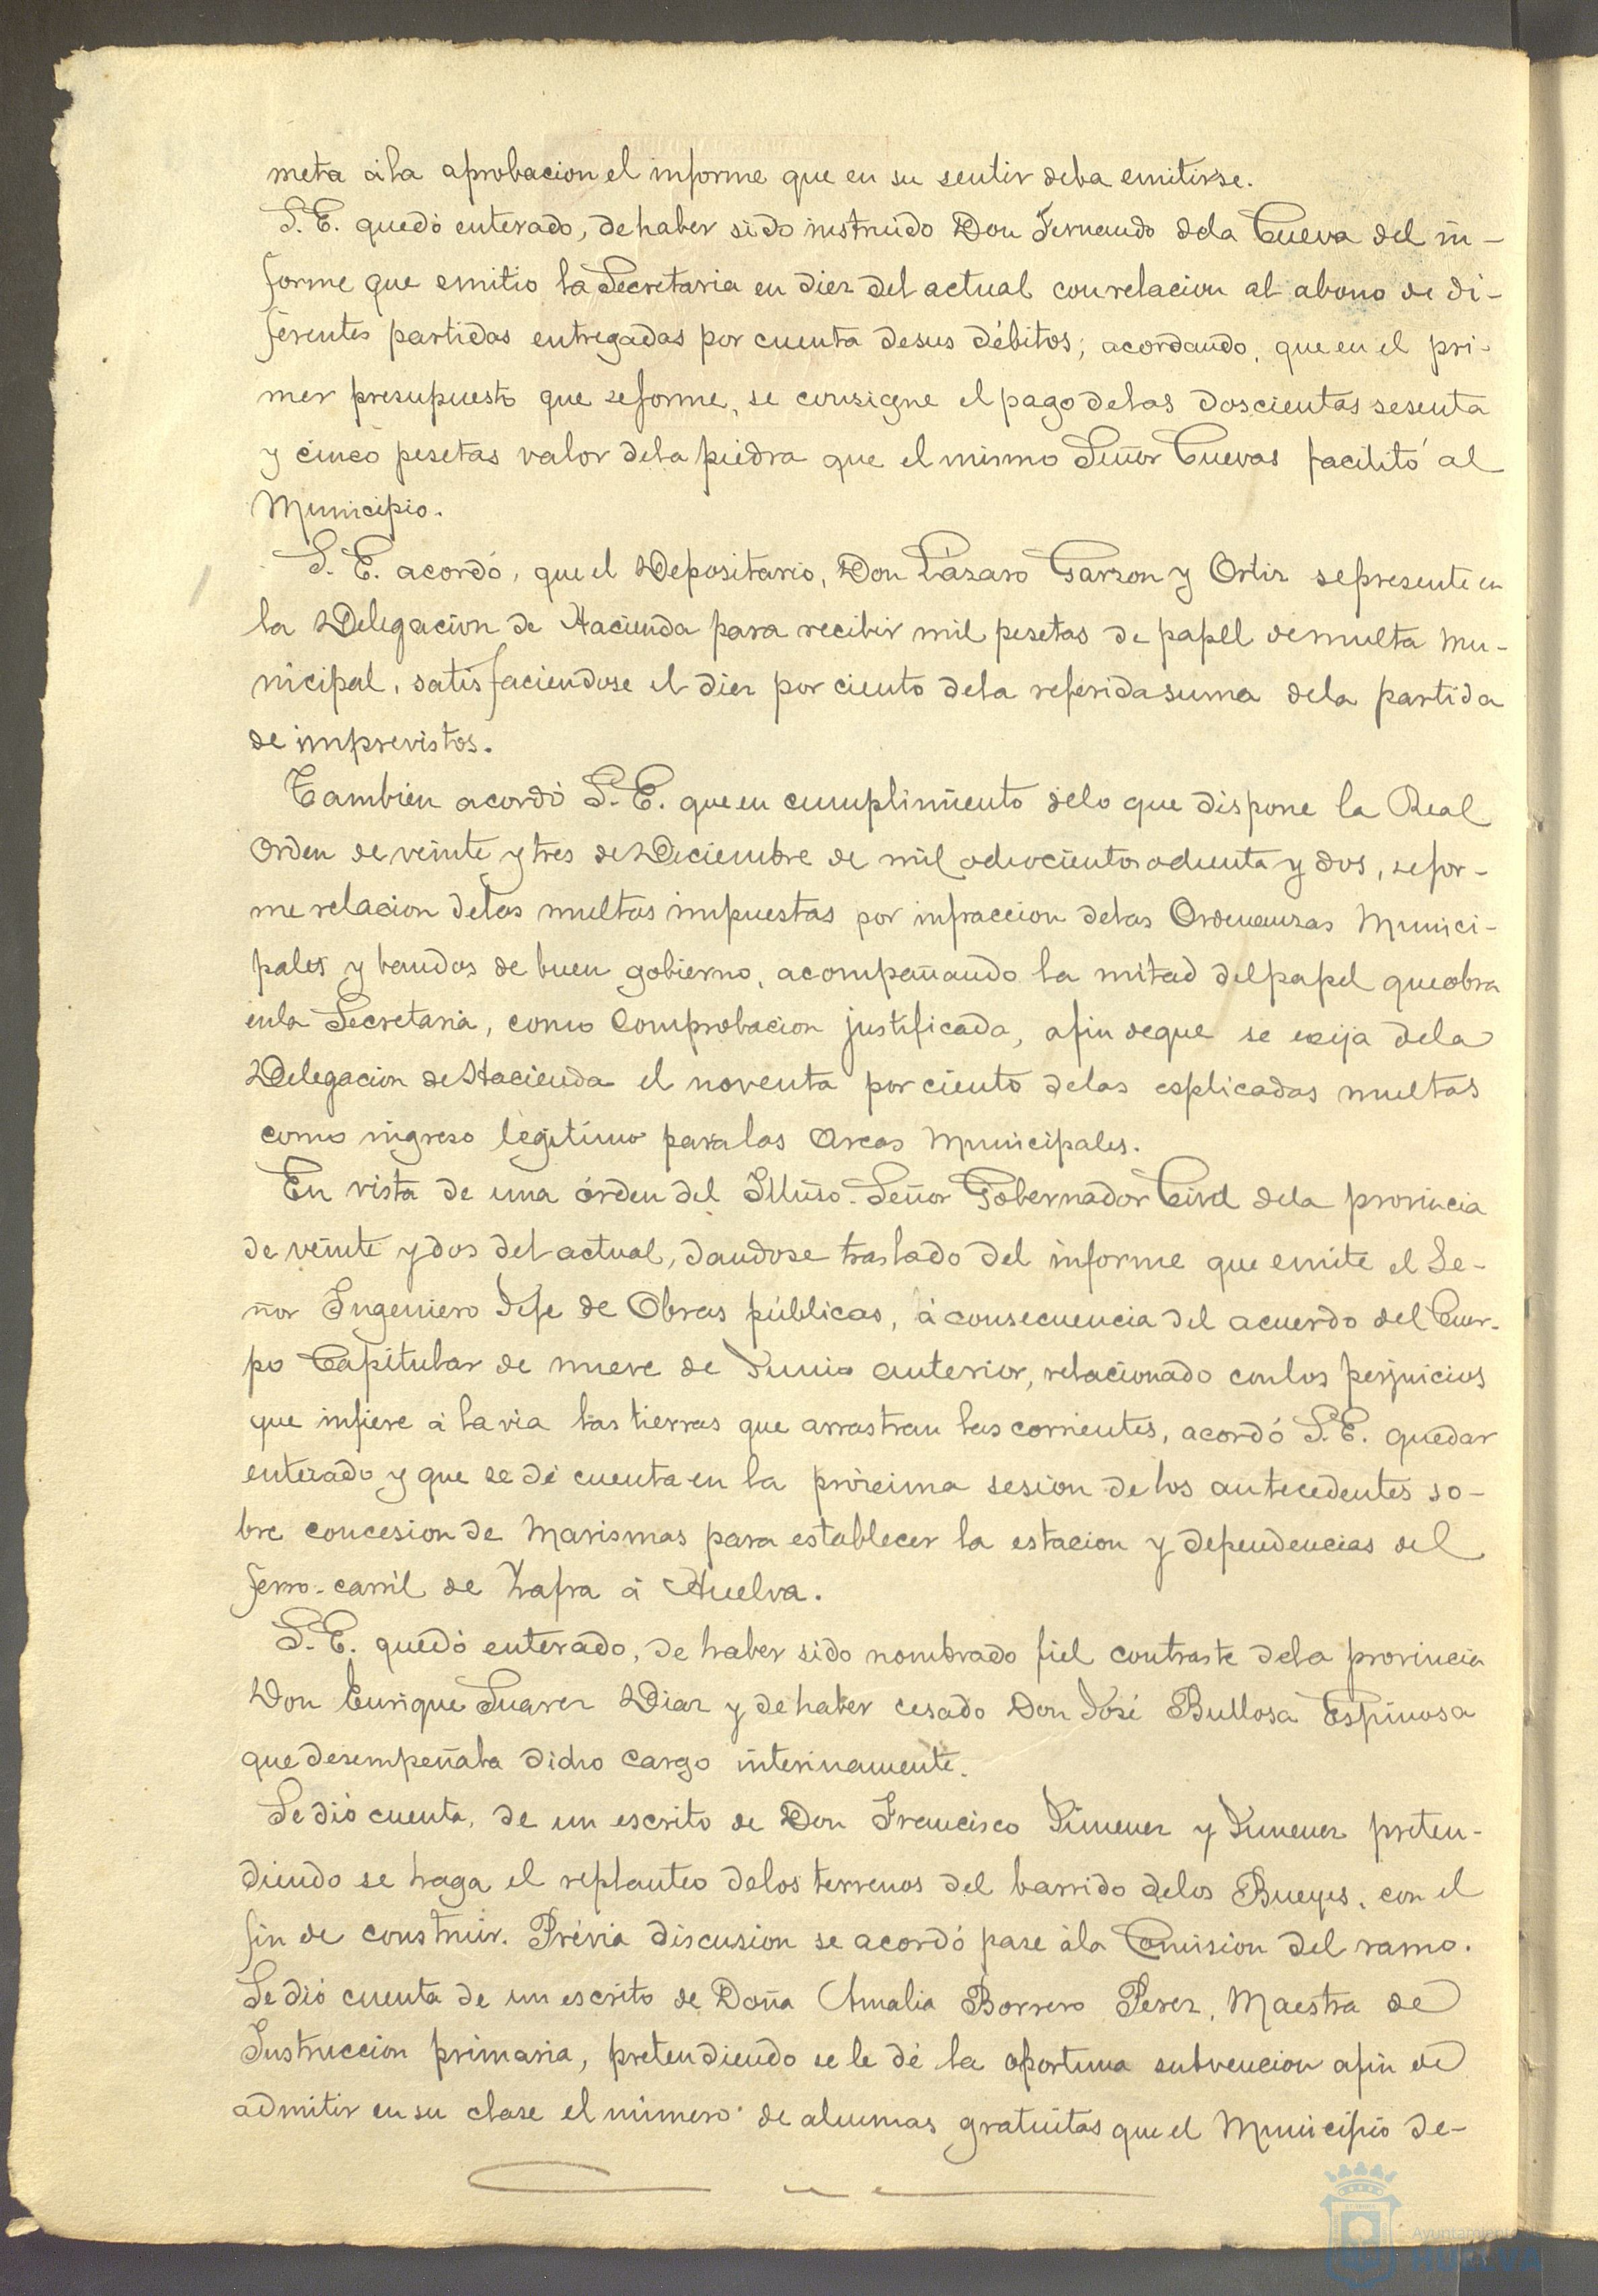 meta á la aprobacion el informe que en su sentir deba emitirse.
S. E. quedó enterado, de haber sido instruido Don Fernando de la Cueva del in-
forme que emitio la Secretaria en diez del actual con relacion al abono de di-
ferentes partidas entregadas por cuenta de sus débitos; acordando, que en el pri-
mer presupuesto que se forme, se consigne el pago de las doscientas sesenta
y cinco pesetas valor de la piedra que el mismo Señor Cuevas facilitó al
Municipio.
S. E. acordó, que el Depositario, Don Lázaro Garzon y Ortiz se presente en
la Delegacion de Hacienda para recibir mil pesetas de papel de multa Mu-
nicipal, satisfaciendose el diez por ciento de la referida suma de la partida
de imprevistos.
Tambien acordó S. E. que en cumplimiento de lo que dispone la Real
orden de veinte y tres de Diciembre de mil ochocientos ochenta y dos, se for-
me relacion de las multas impuestas por infraccion de las Ordenanzas Munici-
pales y bandos de buen gobierno, acompañando la mitad del papel que obra
en la Secretaria, como Comprobacion justificada, a fin de que se exija de la
Delegacion de Hacienda el noventa por ciento de las esplicadas multas
como ingreso legítimo para las Arcas Municipales.
En vista de una órden del Illmo. Señor Gobernador Civil de la provincia
de veinte y dos del actual, dandose traslado del informe que emite el Se-
ñor Ingeniero Jefe de Obras públicas, á consecuencia del acuerdo del Cuer-
po Capitular de nueve de Junio anterior, relacionado con los perjuicios
que infiere á la via las tierras que arrastran las corrientes, acordó S. E. quedar
enterado y que se dé cuenta en la próxima sesion de los antecedentes so-
bre concesion de Marismas para establecer la estacion y dependencias del
ferro-carril de Zafra á Huelva.
S. E. quedó enterado, de haber sido nombrado fiel contraste de la provincia
Don Enrique Suarez Diaz y de haber cesado Don José Bullosa Espinosa
que desempeñaba dicho cargo interinamente.
Se dió cuenta, de un escrito de Don Francisco Jimenez y Jimenez preten-
diendo se haga el replanteo de los terrenos del barrido de los Bueyes, con el
fin de construir. Prévia discusion se acordó pase á la Comision del ramo.
Se dió cuenta de un escrito de Doña Amalia Borrero Perez, Maestra de
Instruccion primaria, pretendiendo se le dé la oportuna subvencion a fin de
admitir en su clase el número de alumnas gratuitas que el Municipio de-
Ayuntamiento de
HUELVA